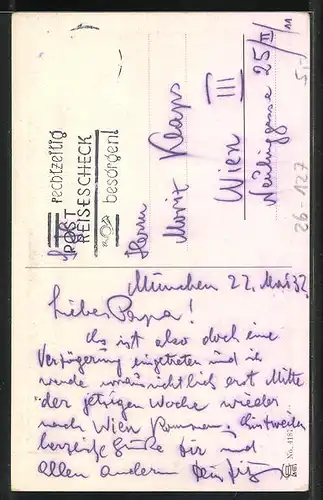 rechtzeitig
POST
REISESCHECK
besorgen!
Herrn
Moritz Klaps
Wien III
25/II/11
5,-
26-127
München 22. Mai 32
Lieber Papa!
Es ist also doch eine
Verzögerung eingetreten und ich
werde voraussichtlich erst Mitte
der jetzigen Woche wieder
nach Wien kommen. Einstweilen
herzliche Grüße Dir und
allen anderen Dein
No. 418